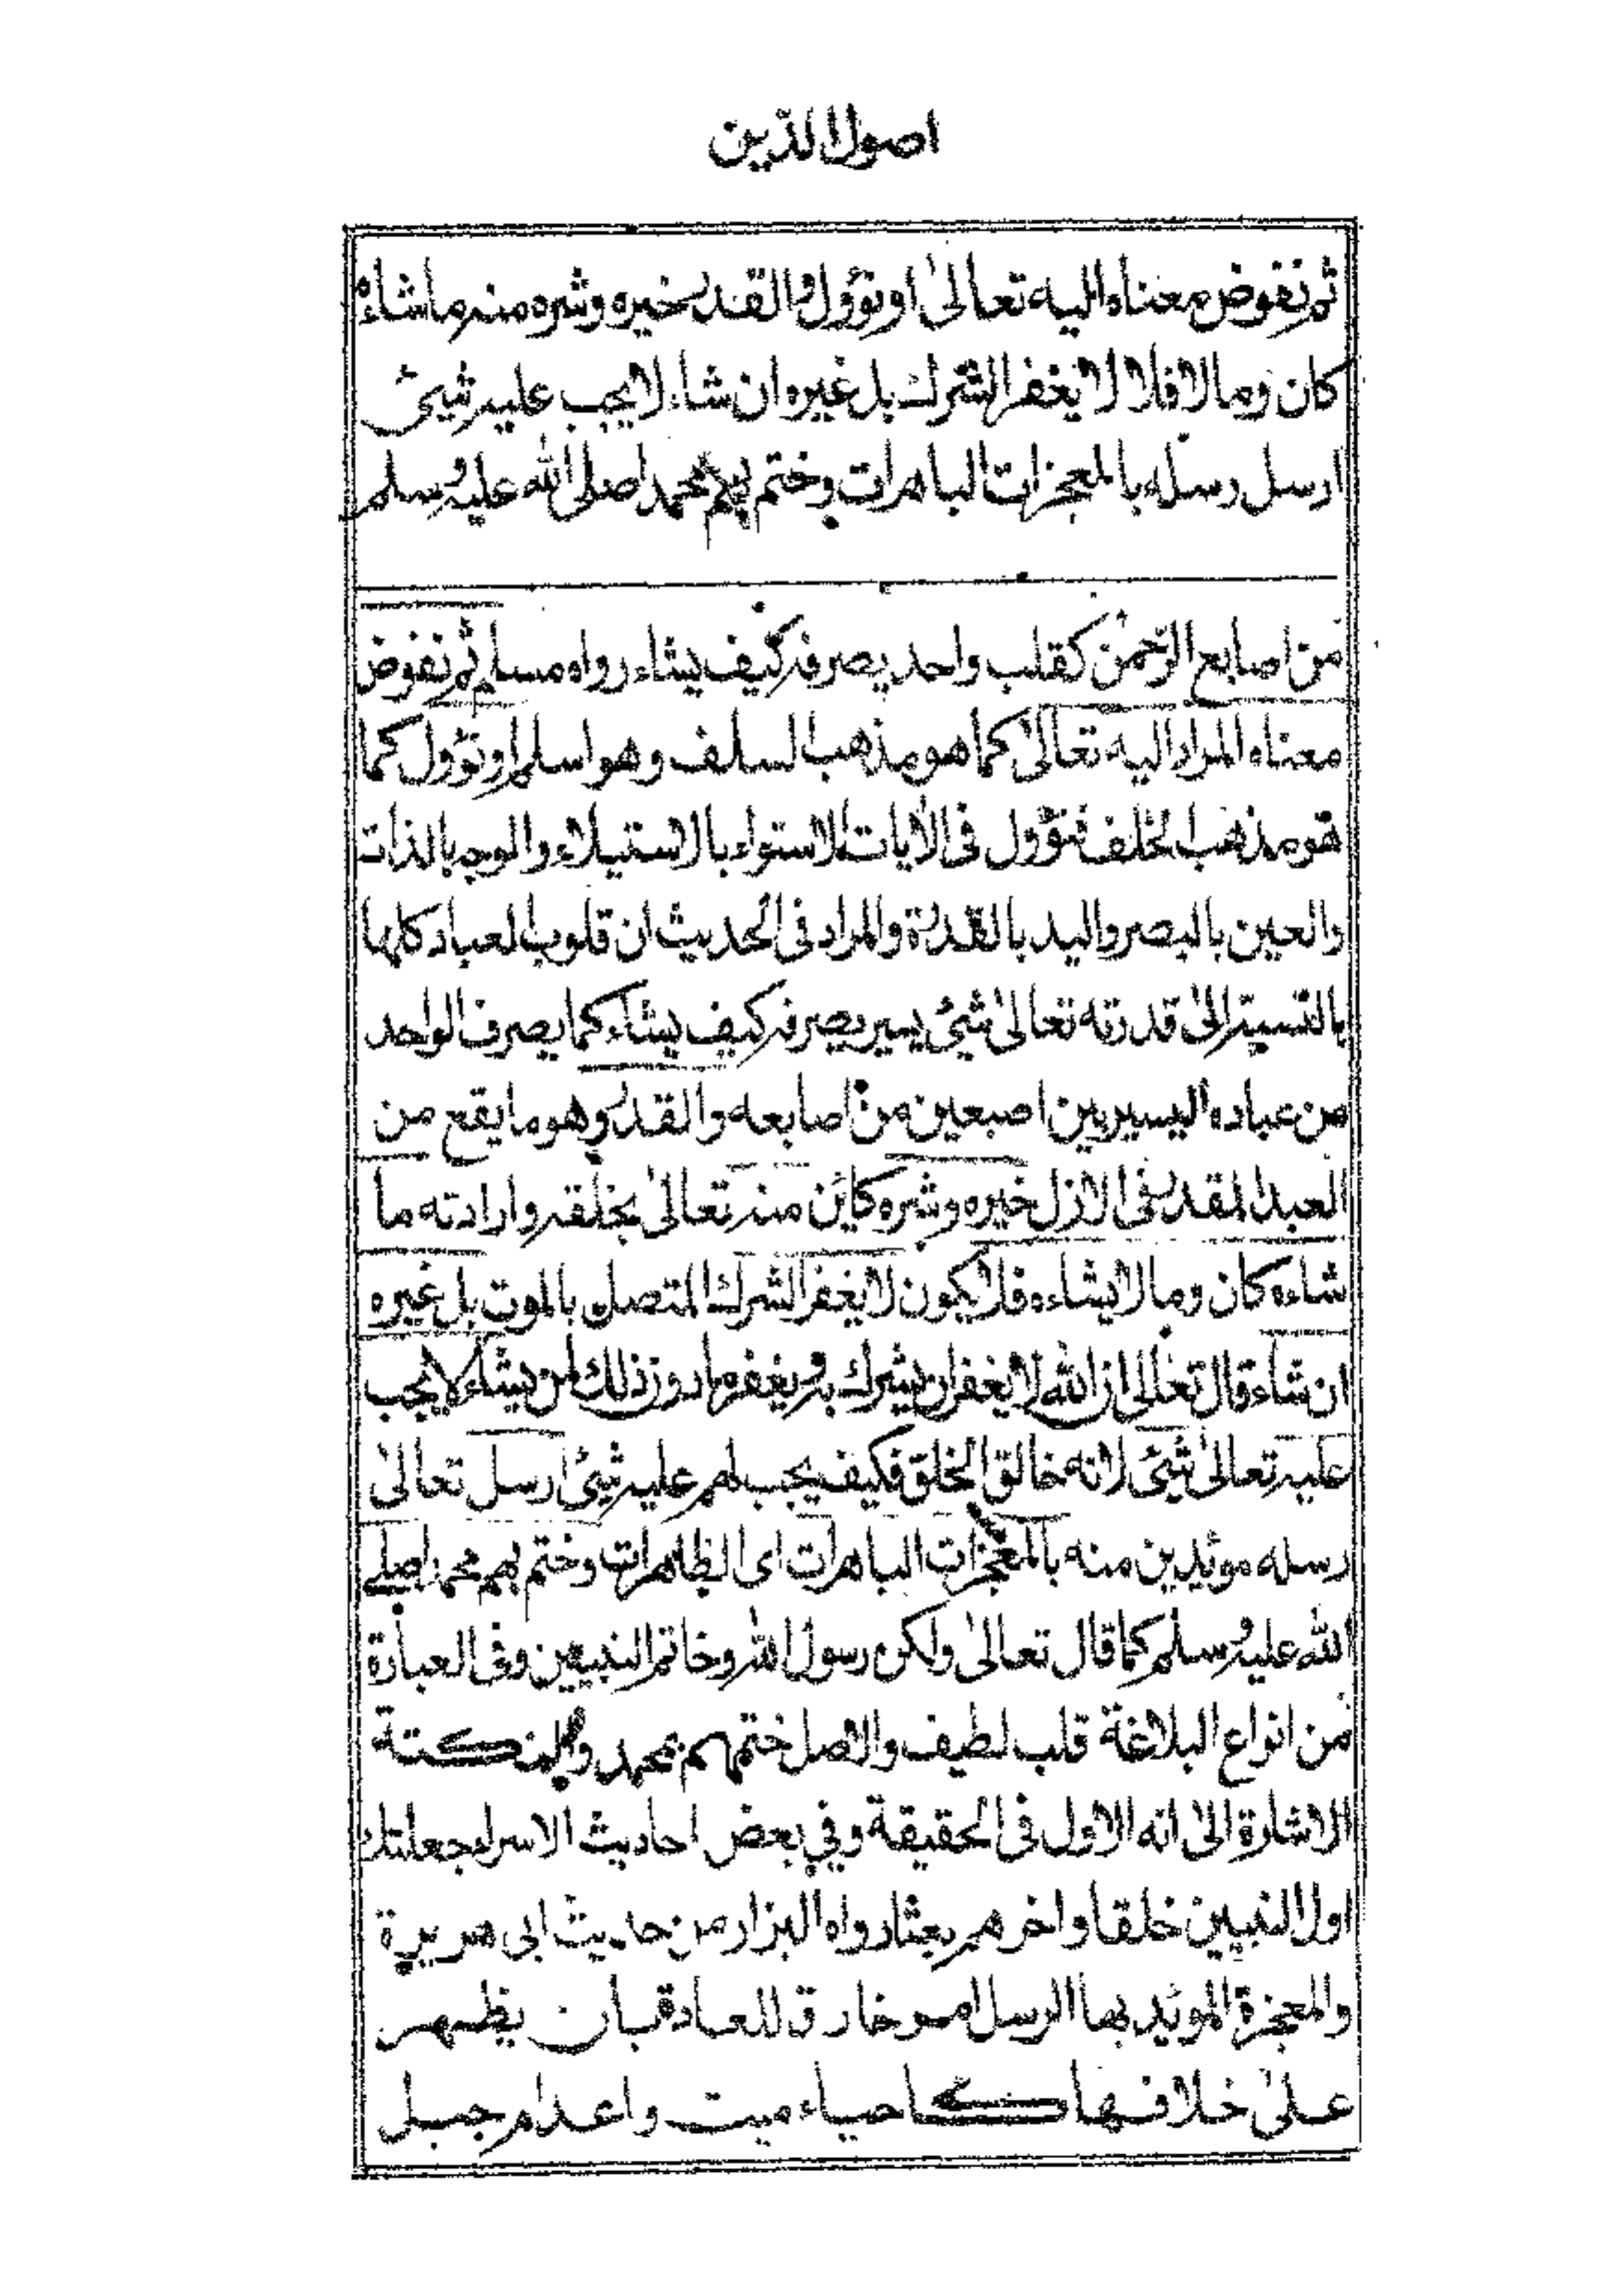 اصول الدين
ثم نفوض معناه اليه تعالى او نؤول والقدر خيره وشره منه ما شاء
كان وما لا فلا لا يغفر الشرك بل غيره ان شاء لا يجب عليه شيئ
ارسل رسله بالمعجزات الباهرات وختم بهم محمدا صلى الله عليه وسلم
من اصابع الرحمن كقلب واحد يصرفه كيف يشاء رواه مسلم ثم نفوض
معناه المراد اليه تعالى كما هو مذهب السلف وهو اسلم او نؤول كما
هو مذهب الخلف فنؤول فى الايات الاستواء بالاستيلاء والوجه بالذات
والعين بالبصر واليد بالقدرة والمراد فى الحديث ان قلوب العباد كلها
بالنسبة الى قدرته تعالى شيئ يسير يصرفه كيف يشاء كما يصرف الواحد
من عباده اليسير بين اصبعين من اصابعه والقدر وهو ما يقع من
العبد المقدر فى الازل خيره وشره كائن منه تعالى بخلقه وارادته ما
شاءه كان وما لا يشاءه فلا يكون لا يغفر الشرك المتصل بالموت بل غيره
ان شاء قال تعالى ان الله لا يغفر ان يشرك به ويغفر ما دون ذلك لمن يشاء لا يجب
عليه تعالى شيئ لانه خالق الخلق فكيف يجب لهم عليه شيئ ارسل تعالى
رسله مؤيدين منه بالمعجزات الباهرات اى الظاهرات وختم بهم محمدا صلى
الله عليه وسلم كما قال تعالى ولكن رسول الله وخاتم النبيين وفى العبارة
من انواع البلاغة قلب لطيف والاصل ختمهم بمحمد والنكتة
الاشارة الى انه الاول فى الحقيقة وفي بعض احاديث الاسراء جعلتك
اول النبيين خلقا واخرهم بعثا رواه البزار من حديث ابى هريرة
والمعجزة المؤيد بها الرسل امر خارق للعادة بان يظهر
على خلافها كاحياء ميت واعدام جبل